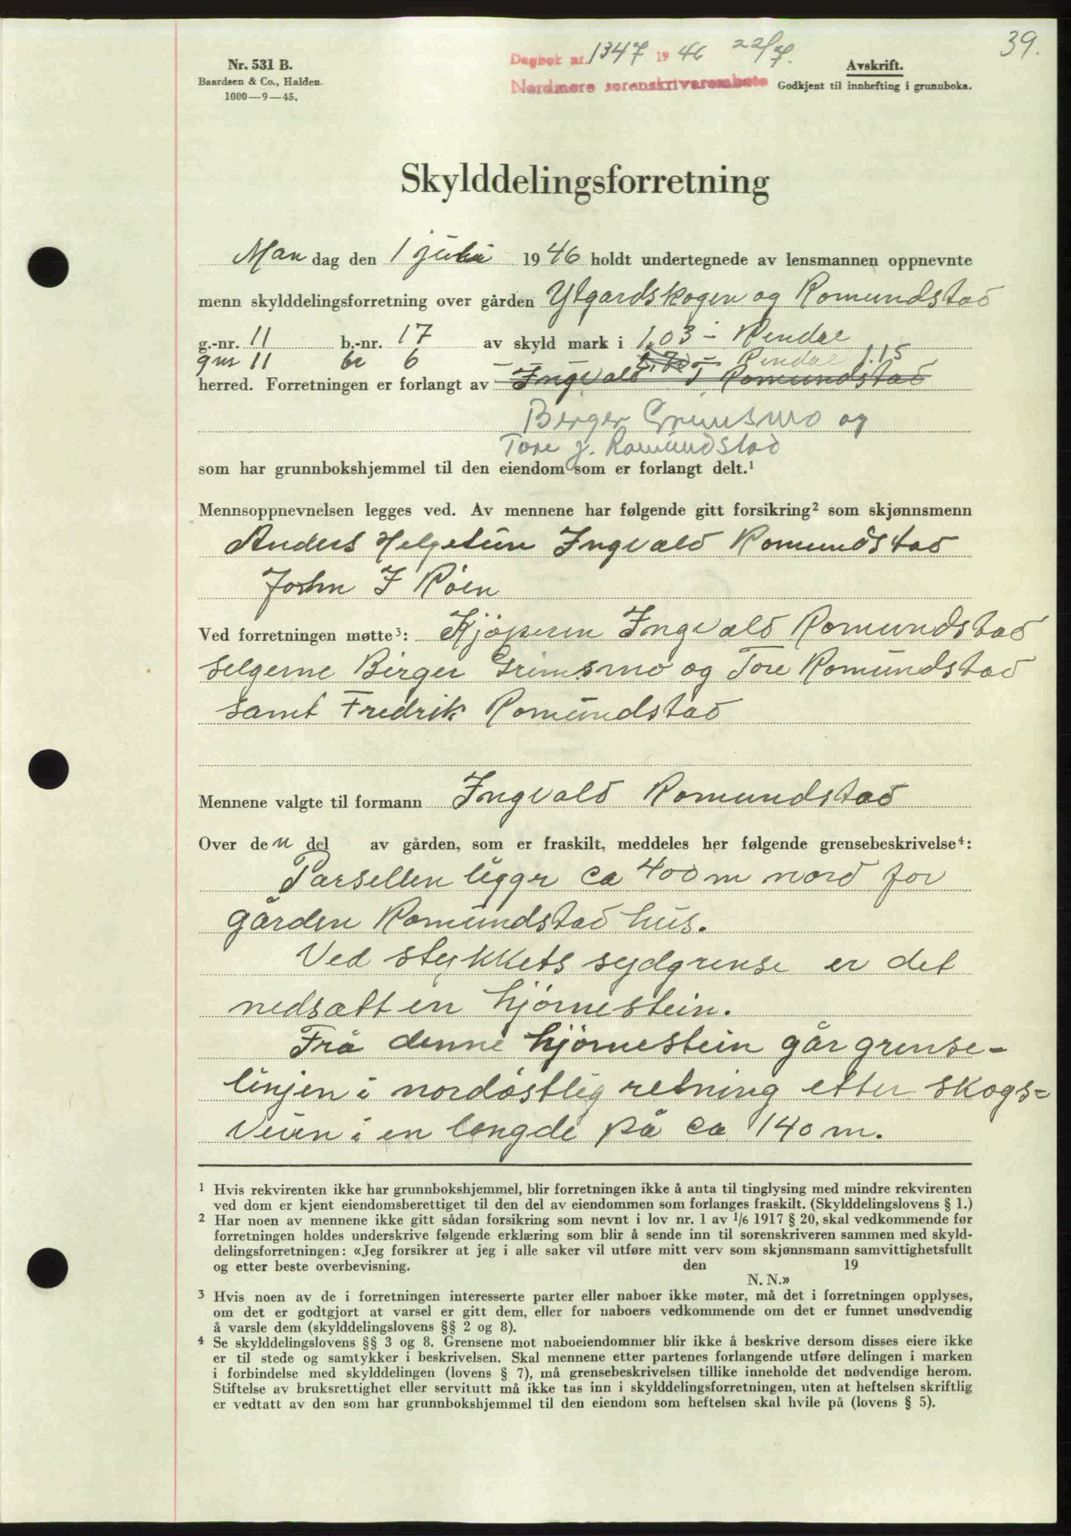 39.
Nr. 531 B.
Baardsen & Co., Halden.
1000—9—45.
Dagbok nr. 1347 1946 22/7.
Nordmøre sorenskriverembete
Avskrift.
Godkjent til innhefting i grunnboka.
Skylddelingsforretning
Man dag den 1 juli 1946 holdt undertegnede av lensmannen oppnevnte
menn skylddelingsforretning over gården Ytgardskogen og Romundstad
g.-nr. 11 b.-nr. 17 av skyld mark i 1,03 – Rindal
gnr 11 br 6 Rindal 1.15
herred. Forretningen er forlangt av Ingvald T Romundstad
Birger Grimsmo og
Tore J. Romundstad
som har grunnbokshjemmel til den eiendom som er forlangt delt.¹
Mennsoppnevnelsen legges ved. Av mennene har følgende gitt forsikring² som skjønnsmenn
Anders Helgetun Ingvald Romundstad
John I Røen
Ved forretningen møtte³: Kjøperen Ingvald Romundstad
selgerne Birger Grimsmo og Tore Romundstad
samt Fredrik Romundstad
Mennene valgte til formann Ingvald Romundstad
Over den del av gården, som er fraskilt, meddeles her følgende grensebeskrivelse⁴:
Parsellen ligger ca 400 m nord for
gården Romundstad hus.
Ved stykkets sydgrense er det
nedsatt en hjørnestein.
Frå denne hjørnestein går grense-
linjen i nordøstlig retning etter skogs=
veien i en lengde på ca 140 m.
¹ Hvis rekvirenten ikke har grunnbokshjemmel, blir forretningen ikke å anta til tinglysing med mindre rekvirenten
ved dom er kjent eiendomsberettiget til den del av eiendommen som forlanges fraskilt. (Skylddelingslovens § 1.)
² Har noen av mennene ikke gitt sådan forsikring som nevnt i lov nr. 1 av 1/6 1917 § 20, skal vedkommende før
forretningen holdes underskrive følgende erklæring som blir å sende inn til sorenskriveren sammen med skyld-
delingsforretningen: «Jeg forsikrer at jeg i alle saker vil utføre mitt verv som skjønnsmann samvittighetsfullt
og etter beste overbevisning. den 19
N. N.»
³ Hvis noen av de i forretningen interesserte parter eller naboer ikke møter, må det i forretningen opplyses,
om det er godtgjort at varsel er gitt dem, eller for naboers vedkommende om det er funnet unødvendig
å varsle dem (skylddelingslovens §§ 2 og 8).
⁴ Se skylddelingslovens §§ 3 og 8. Grensene mot naboeiendommer blir ikke å beskrive dersom disses eiere ikke
er til stede og samtykker i beskrivelsen. Skal mennene etter partenes forlangende utføre delingen i marken
i forbindelse med skylddelingen (lovens § 7), må grensebeskrivelsen tillike inneholde det nødvendige herom.
Stiftelse av bruksrettighet eller servitutt må ikke tas inn i skylddelingsforretningen, uten at heftelsen skriftlig
er vedtatt av den som har grunnbokshjemmel til den eiendom som heftelsen skal hvile på (lovens § 5).